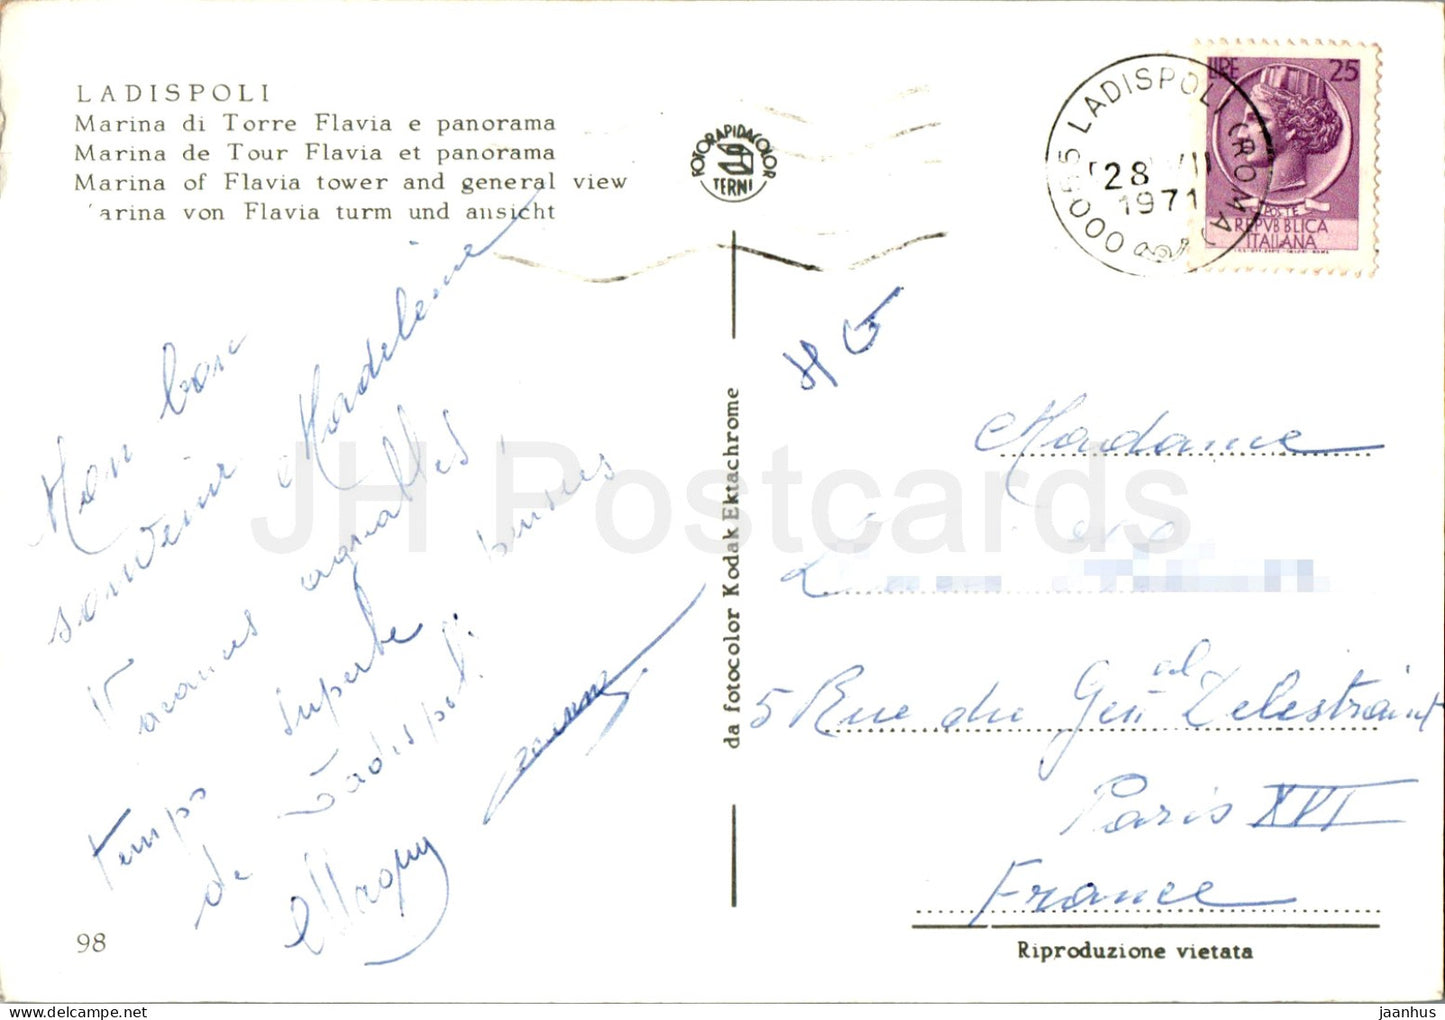 LADISPOLI
Marina di Torre Flavia e panorama
Marina de Tour Flavia et panorama
Marina of Flavia tower and general view
arina von Flavia turm und ansicht
FOTORAPIDACOLOR
TERNI
00055 LADISPOLI (ROMA)
28 VII
1971
LIRE 25
POSTE
REPVBBLICA
ITALIANA
Mon bon
souvenir Madeleine
Vacances agréables,
temps superbe
de Ladispoli
98
da fotocolor Kodak Ektachrome
Madame
5 Rue du Génal Delestraint
Paris XVI
France
Riproduzione vietata
JH Postcards
jaanhus www.delcampe.net